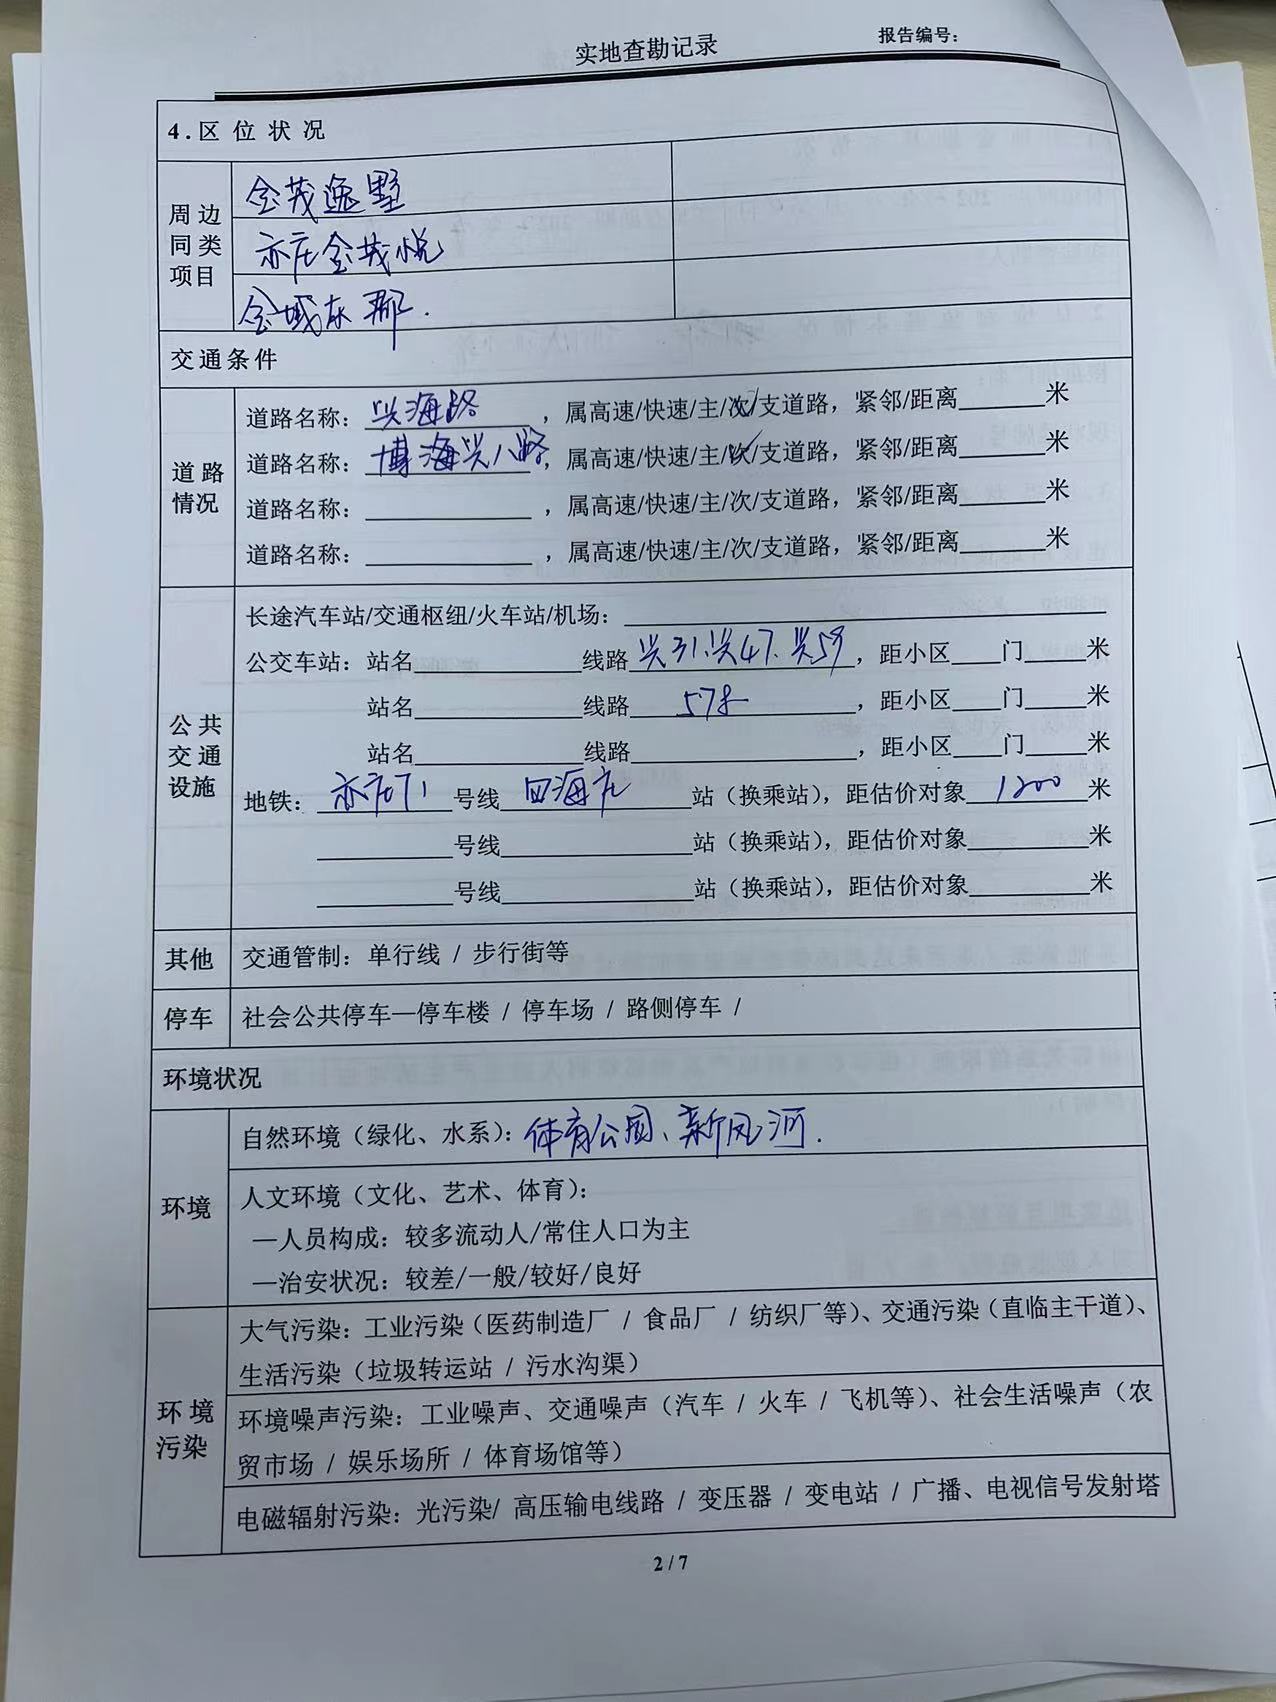 实地查勘记录
报告编号：
4.区位状况
周边同类项目
金茂逸墅
亦庄金茂悦
金城东郡.
交通条件
道路情况
道路名称：兴海路，属高速/快速/主/次/支道路，紧邻/距离______米
道路名称：博海兴八路，属高速/快速/主/次/支道路，紧邻/距离______米
道路名称：____________，属高速/快速/主/次/支道路，紧邻/距离______米
道路名称：____________，属高速/快速/主/次/支道路，紧邻/距离______米
公共交通设施
长途汽车站/交通枢纽/火车站/机场：____________
公交车站：站名____________线路兴31.兴47.兴59，距小区____门_____米
站名____________线路578，距小区____门_____米
站名____________线路____________，距小区____门_____米
地铁：亦庄T1号线四海庄站（换乘站），距估价对象1200米
__________号线____________站（换乘站），距估价对象________米
__________号线____________站（换乘站），距估价对象________米
其他 交通管制：单行线 / 步行街等
停车 社会公共停车—停车楼 / 停车场 / 路侧停车 /
环境状况
环境
自然环境（绿化、水系）：体育公园、新凤河.
人文环境（文化、艺术、体育）：
—人员构成：较多流动人/常住人口为主
—治安状况：较差/一般/较好/良好
环境污染
大气污染：工业污染（医药制造厂 / 食品厂 / 纺织厂等）、交通污染（直临主干道）、
生活污染（垃圾转运站 / 污水沟渠）
环境噪声污染：工业噪声、交通噪声（汽车 / 火车 / 飞机等）、社会生活噪声（农
贸市场 / 娱乐场所 / 体育场馆等）
电磁辐射污染：光污染/ 高压输电线路 / 变压器 / 变电站 / 广播、电视信号发射塔
2 / 7